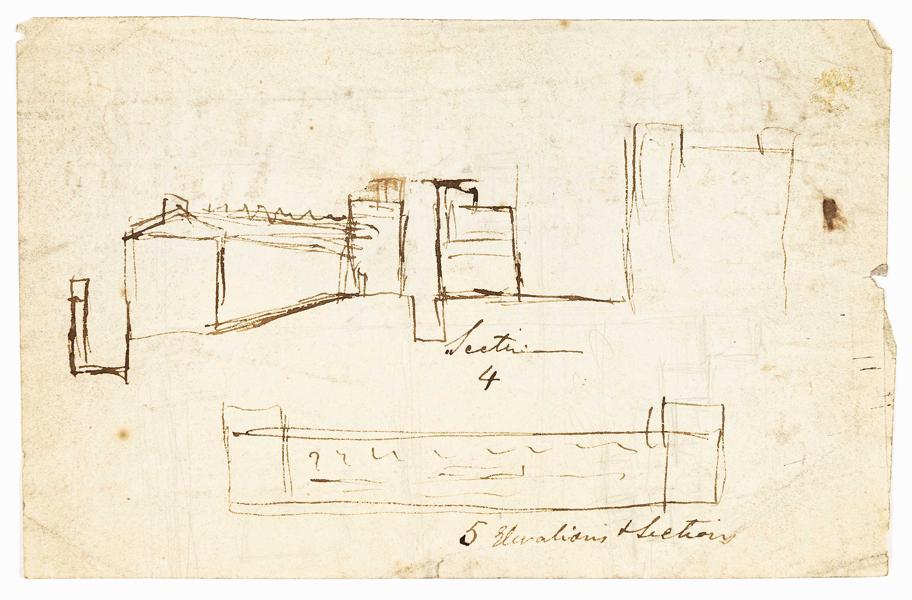 Section
4
5 Elevations & Sections